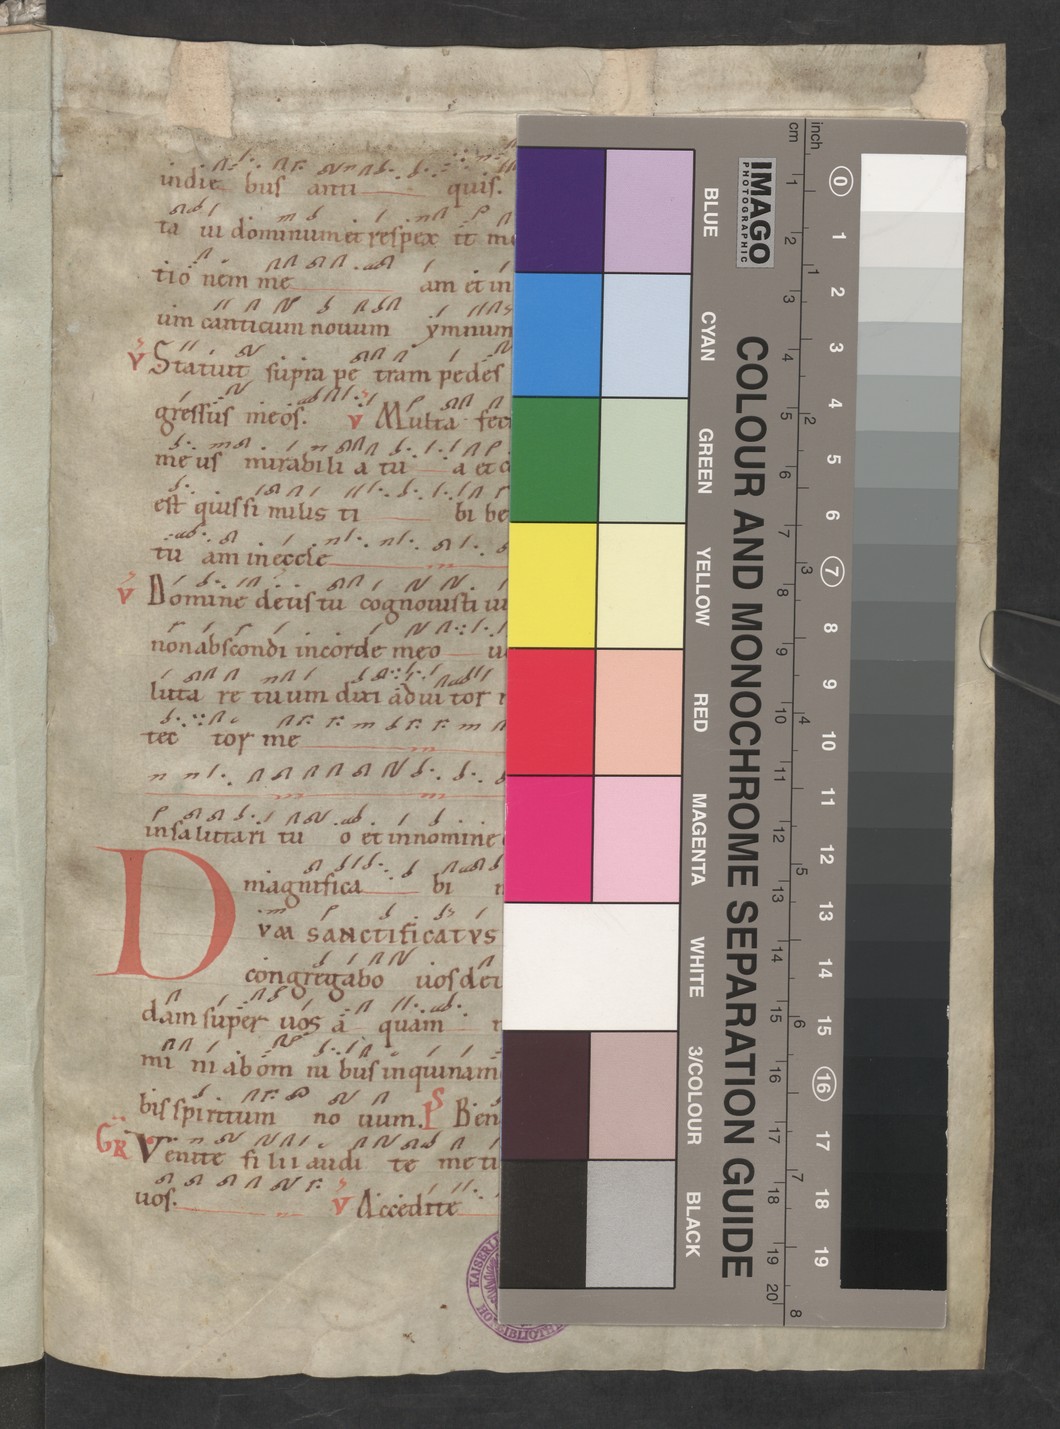 indie bus anti quis.
ta ui dominum et respex it me
tio nem me am et in
um canticum nouum ymnum
v Statuit supra pe tram pedes
gressus meos. v Multa feci
me us mirabili a tu a et c
est quis si milis ti bi be
tu am in eccle
v Domine deus tu cognouisti iu
non abscondi in corde meo
luta re tu um dixi adiu tor
tec tor me
in salutari tu o et in nomine
magnifica bi
D VM SANCTIFICATVS
congregabo uos de
dam super uos a quam
mi ni ab om ni bus inquinam
bis spiritum no uum. Ps Ben
GR Venite fi lii audi te me ti
uos. v Accedite
KAISERL
HOFBIBLIOTHE
BLUE
CYAN
GREEN
YELLOW
RED
MAGENTA
WHITE
3/COLOUR
BLACK
IMAGO
PHOTOGRAPHIC
COLOUR AND MONOCHROME SEPARATION GUIDE
cm 1 2 3 4 5 6 7 8 9 10 11 12 13 14 15 16 17 18 19 20
inch 1 2 3 4 5 6 7 8
0 1 2 3 4 5 6 7 8 9 10 11 12 13 14 15 16 17 18 19